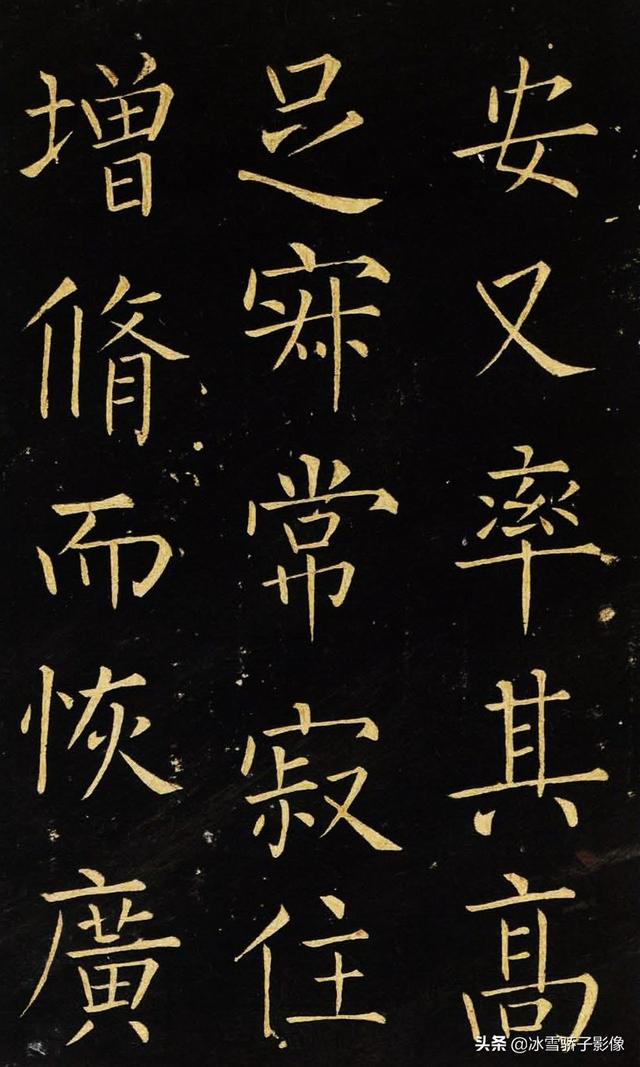 安又率其高
足常寂住
增脩而恢廣
头条 @冰雪骄子影像